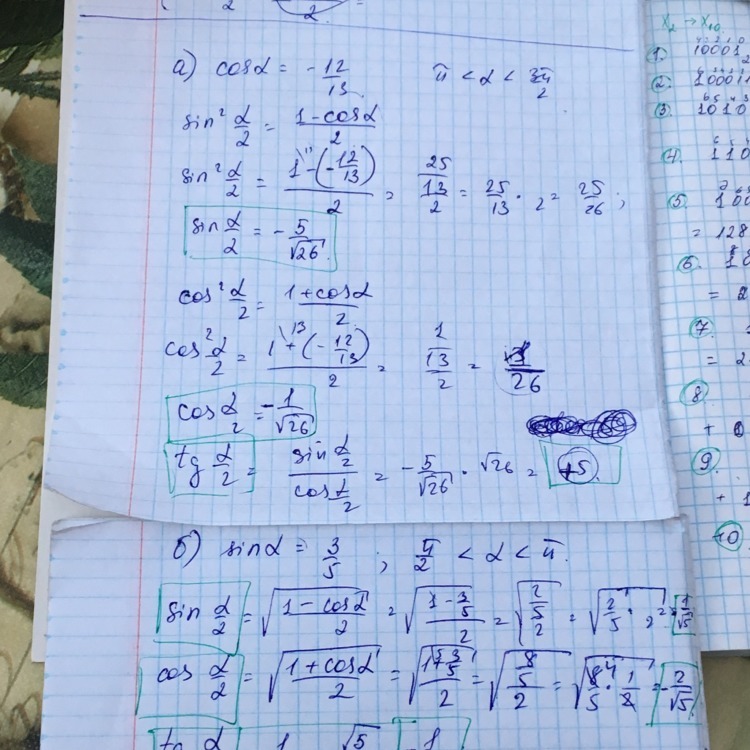 2   2 =
а) cosα = -12/13   π < α < 3π/2
sin² α/2 = (1 - cosα)/2
sin² α/2 = (1 - (-12/13))/2 = (25/13)/2 = 25/13 · 2 = 25/26 ;
sin α/2 = - 5/√26
cos² α/2 = (1 + cosα)/2
cos² α/2 = (1 + (-12/13))/2 = (1/13)/2 = 1/26
cos α/2 = - 1/√26
tg α/2 = (sin α/2)/(cos α/2) = - 5/√26 · √26 = +5.
б) sinα = 3/5 ; π/2 < α < π.
sin α/2 = √((1 - cosα)/2) = √((1 - 3/5)/2) = √((2/5)/2) = √(2/5 · 2) = 1/√5
cos α/2 = √((1 + cosα)/2) = √((1 + 3/5)/2) = √((8/5)/2) = √(8/5 · 1/2) = - 2/√5
tg α   1   √5   1
X₂ → X₁₀
1. 10001₂
2. 10001
3. 1010
4. 110
5. 100
= 128
6. 10
=
7.
= 2
8
+
9
+ 1
10